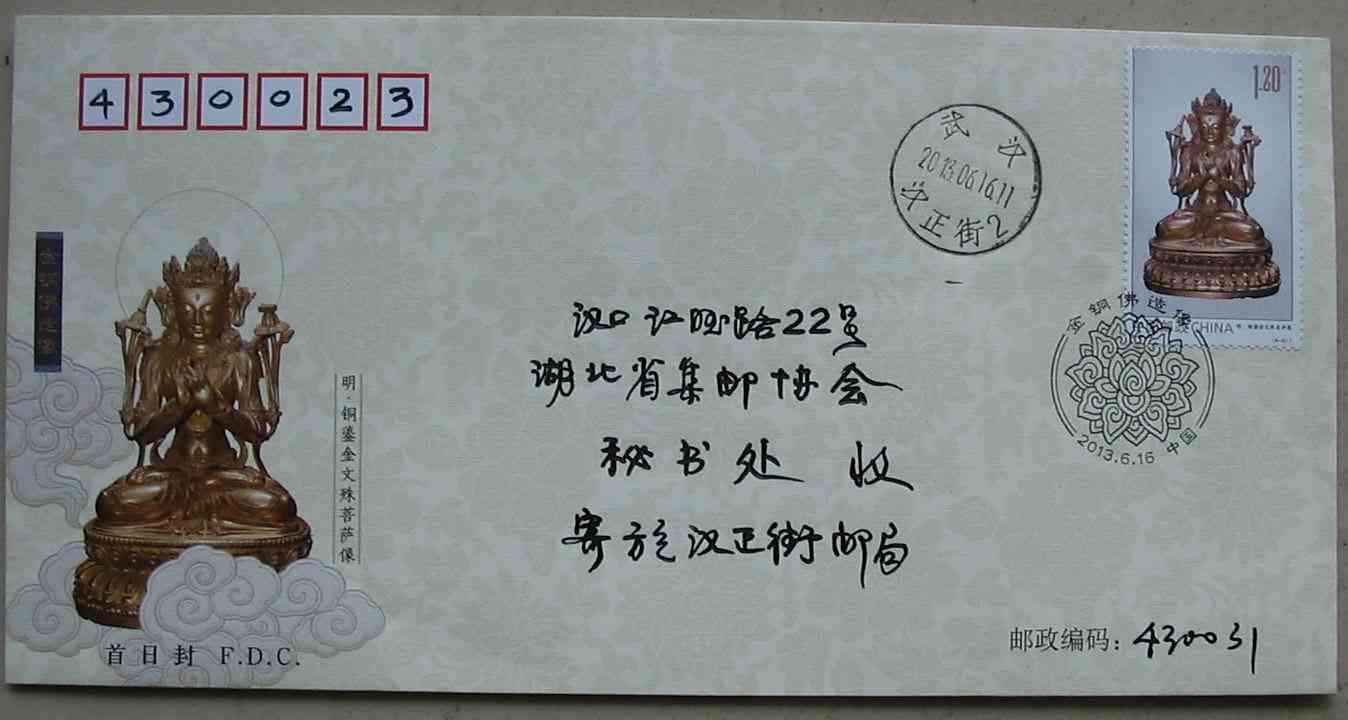 430023
1.20
武汉
2013.06.16.11
汉正街2
中国邮政CHINA
金铜佛造像
2013.6.16 中国
金铜佛造像
明·铜鎏金文殊菩萨像
汉口江旺路22号
湖北省集邮协会
秘书处 收
寄于汉正街邮局
首日封 F.D.C.
邮政编码：430031